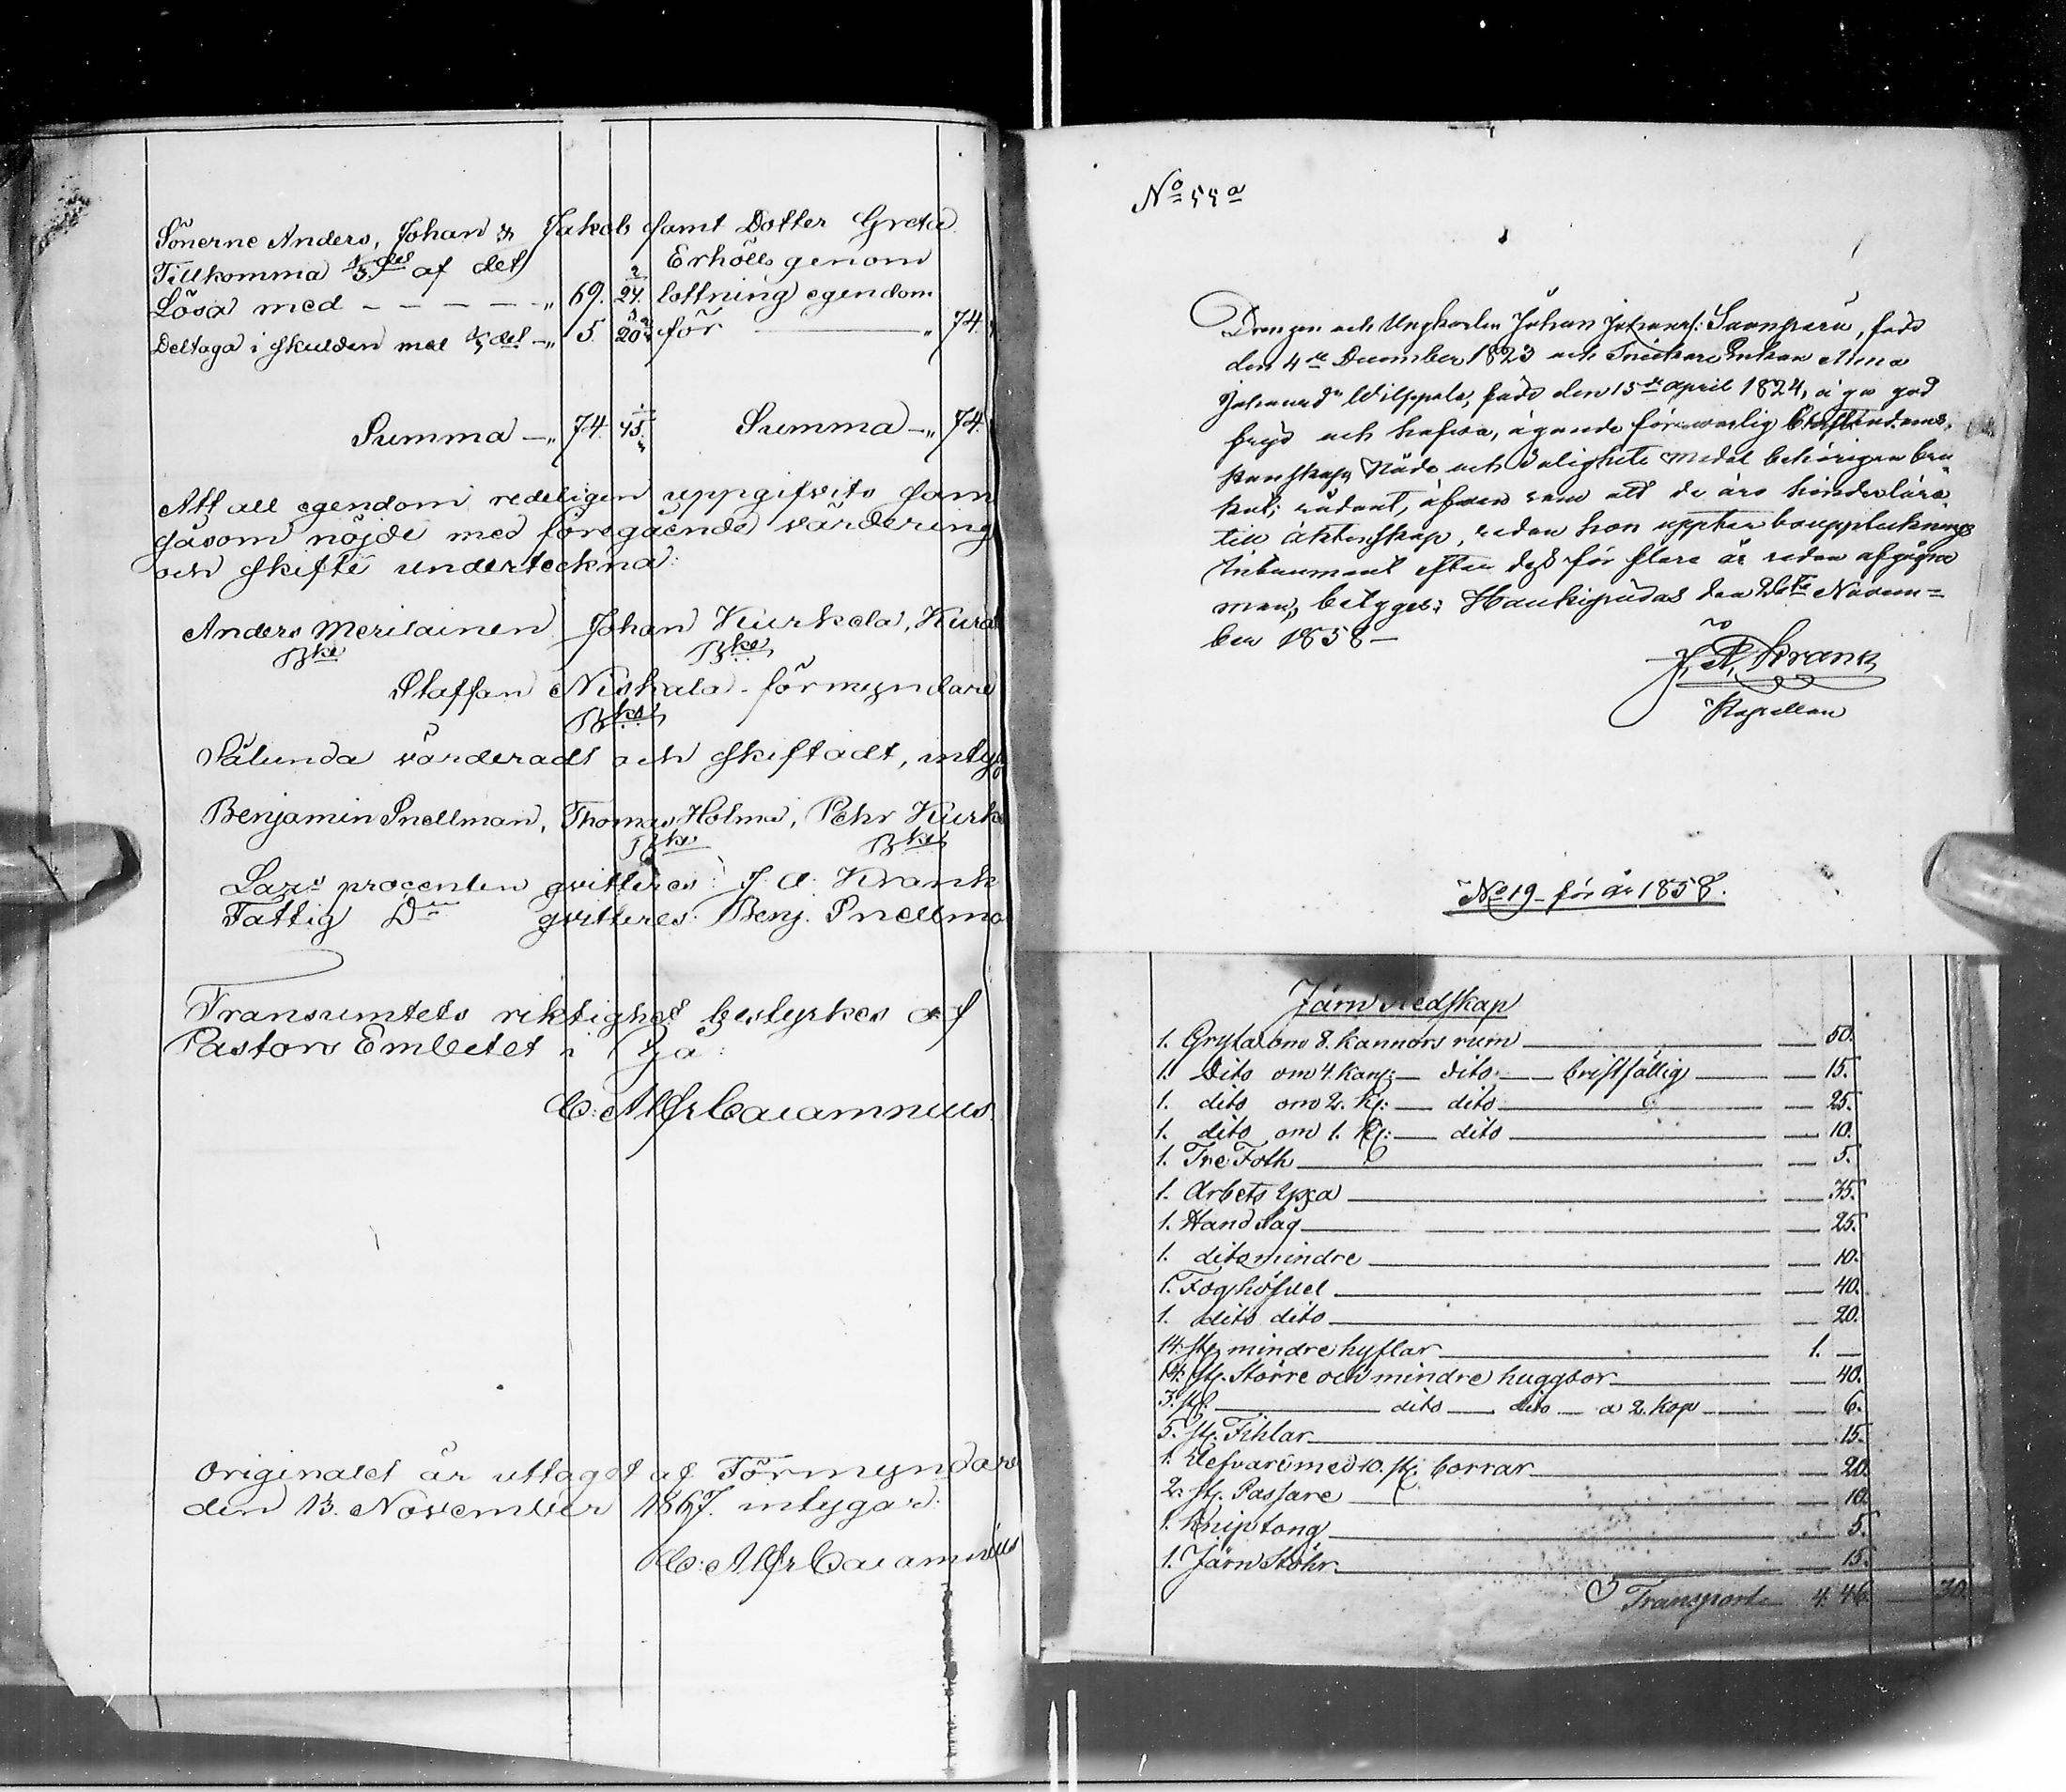 Sönerne Anders, Johan & Jakob samt Dotter Greta
Tillkomma 1/5 del af det Erhölls genom
Lösa med - - - - - „ 69. 24. lottning egendom
Deltaga i skulden med 1/5 del -„ 5. 20 för „ 74.
Summa -„ 74. 45. Summa -„ 74.
Att all egendom redeligen uppgifvits sam
såsom nöjde med föregående värdering
och skifte underteckna:
Anders Merilainen Johan Kurkela,
Bke Bke
Staffan Niskala - förmyndare
Bke
Sålunda värderadt och skiftadt,
Benjamin Snellman, Thomas Holma, Pehr
Bke Bke
procenten qvitteres: J. A. Krank
Fattig Do qvitteres: Benj. Snellma
Transumtets riktighet bestyrkes af
Pastors Embetet i Ijå:
C: Alfr Calamnius.
Originalet är uttaget af Förmyndare
den 13. November 1867. intygar:
C: Alfr Calamnius
No 55 a
Drengen och Ungkarlen Johan Johansn: född
den 4de December 1823 och Enkan Anna
Johansdr född den 15de April 1824, äga god
frejd och hafwa, ägande förswarlig
kunskap, Nåde och Salighets medel behörigen bru
kat; sådant, äfwen som att de äro hinderslösa
till äktenskap, sedan hon
efter dess för flere år sedan afgågne
man, betygas; Haukipudas den 26te Novem=
ber 1858 -
J. A. Krank
Kapellan
No 19 - för år 1858.
Järn Redskap
1. Gryta om 8. kannors rum — 50.
1. Dito om 4. kans: — dito — bristfällig — 15.
1. dito om 2. K: — dito — 25.
1. dito om 1. K: — dito — 10.
1. Tre Foth — 5.
1. Arbets yxa — 35.
1. Hand såg — 25.
1. dito mindre — 10.
1. — 40.
1. dito dito — 20.
14. st. mindre hyflar — 1. —
14. st. Större och mindre huggbor — 40.
3. st. — dito — dito — a 2. kop — 6.
5. st. Fihlar — 15.
1. med 10. st. borrar — 20.
2. st. Passare — 10.
1. Kniptong — 5.
1. Järn Stöhr — 15.
Transport 4. 46. — 30.